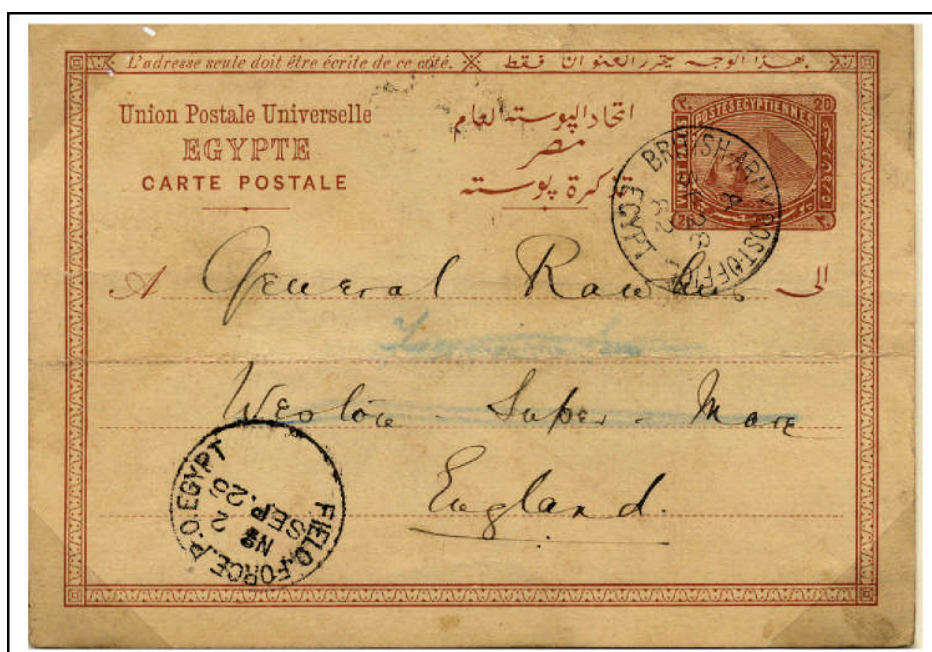 L'adresse seule doit être écrite de ce côté.
بهذا الوجه يتحرر العنوان فقط
Union Postale Universelle
EGYPTE
CARTE POSTALE
اتحاد البوسته العام
مصر
تذكرة بوسته
POSTES EGYPTIENNES
20
20
BRITISH·ARMY·POST·OFFICE
A
28
82
EGYPT
A
General
الى
Weston - Super - Mare
England.
FIELD.FORCE.P.O.EGYPT
Nº 2
SEP.26